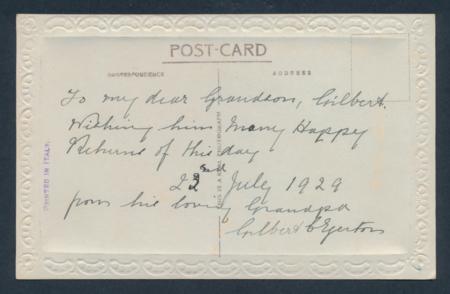 POST-CARD
CORRESPONDENCE
ADDRESS
To my dear Grandson, Gilbert.
Wishing him Many Happy
Returns of this day
22nd July 1929
from his loving Grandpa
Gilbert C Egerton
PRINTED IN ITALY.
THIS IS A REAL PHOTOGRAPH